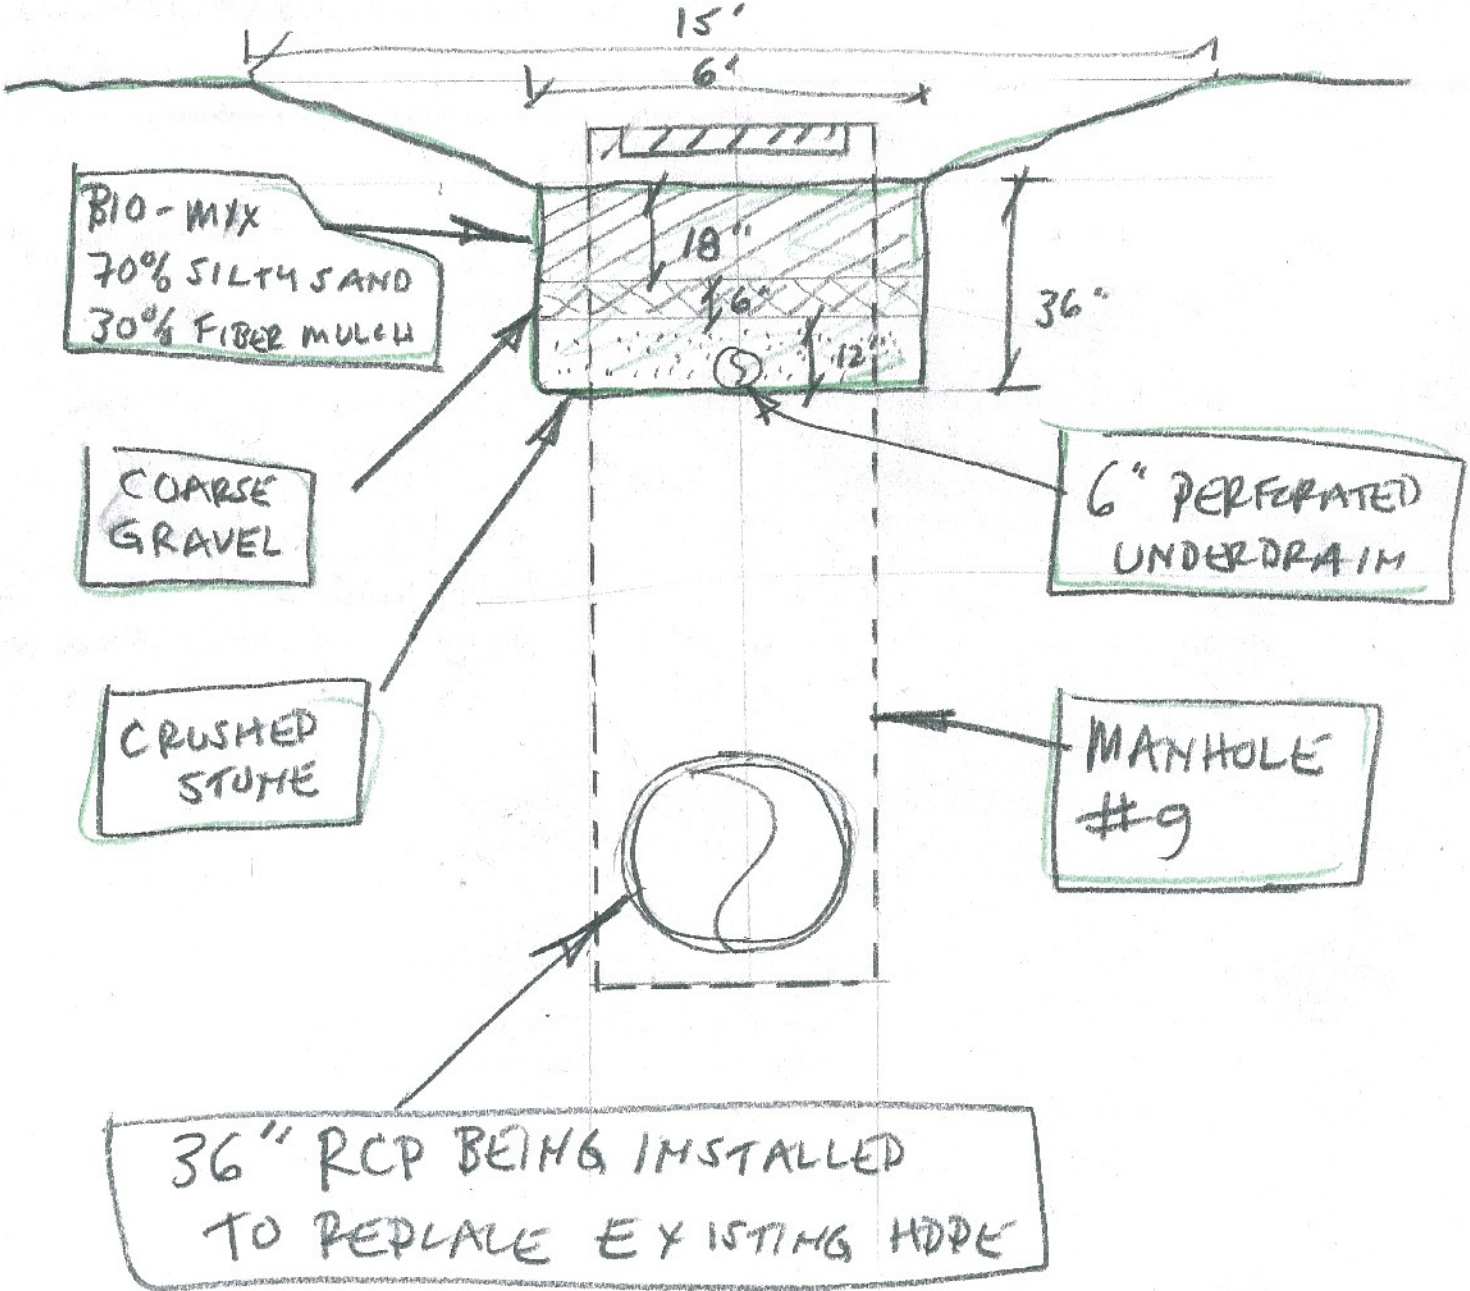 15'
6'
BIO-MIX
70% SILTY SAND
30% FIBER MULCH
18"
6"
12"
36"
COARSE
GRAVEL
6" PERFORATED
UNDERDRAIN
CRUSHED
STONE
MANHOLE
#9
36" RCP BEING INSTALLED
TO REPLACE EXISTING HDPE